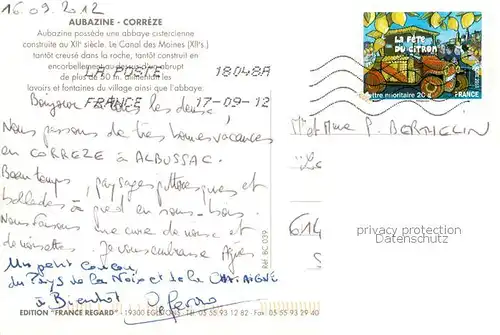 16.09.2012
AUBAZINE - CORRÈZE
Aubazine possède une abbaye cistercienne
construite au XIIe siècle. Le Canal des Moines (XIIes.)
tantôt creusé dans la roche, tantôt construit en
encorbellement au-dessus d'un abrupt
de plus de 50 m. alimentait les
lavoirs et fontaines du village ainsi que l'abbaye.
LA POSTE 18048A
FRANCE 17-09-12
LA FÊTE
DU CITRON
lettre prioritaire 20 g FRANCE
Bonjour à tous les deux !
Nous passons de très bonnes vacances
en CORREZE à ALBUSSAC.
Beau temps, paysages pittoresques et
ballades à pied en sous-bois.
Nous faisons une cure de noix et
de noisettes. Je vous embrasse Agnès
Un petit coucou
du Pays de la Noix et de la CHATAIGNE
à Bientôt
Mr et Mme P. BERTHELIN
614
privacy protection
Datenschutz
Réf. BC 039
EDITION "FRANCE REGARD" - 19300 EGLETONS Tél. 05 55 93 12 82 - Fax 05 55 93 29 40